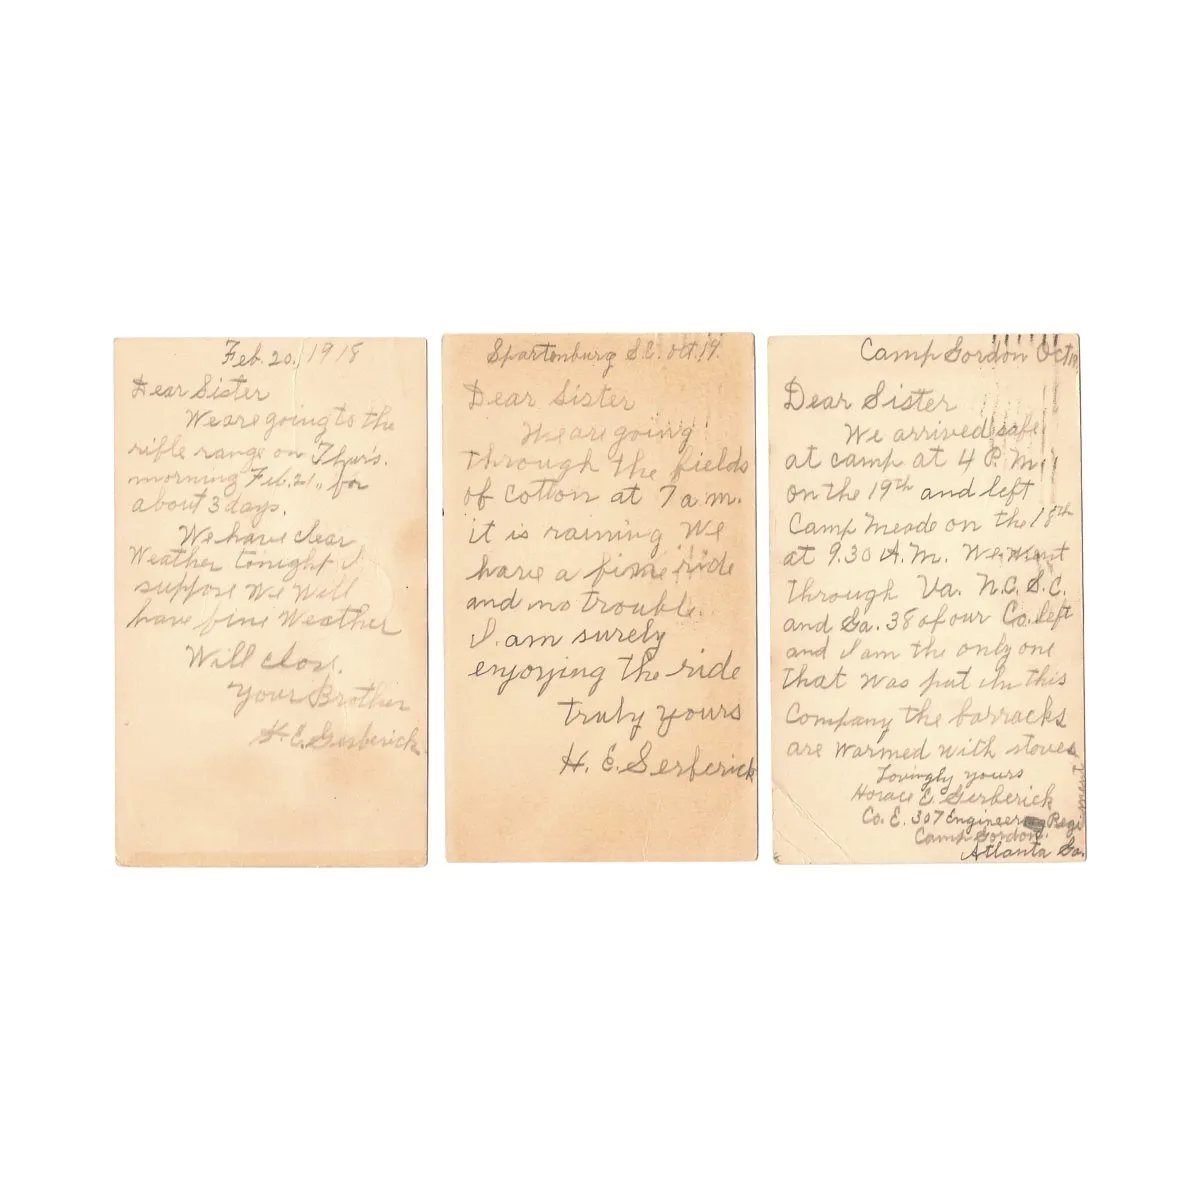 Feb. 20, 1918
Dear Sister
We are going to the
rifle range on Thur's.
morning Feb. 21., for
about 3 days.
We have clear
Weather tonight I
suppose We Will
have fine Weather
Will close.
Your Brother
H. E. Gerberick
Spartenburg S.C. Oct. 19.
Dear Sister
We are going
through the fields
of cotton at 7 a m.
it is raining We
have a fine ride
and no trouble.
I am surely
enjoying the ride
truly yours
H. E. Gerberick
Camp Gordon Oct
Dear Sister
We arrived safe
at camp at 4 P.M.
on the 19th and left
Camp Meade on the 18th
at 9.30 A.M. We went
through Va. N.C. S.C.
and Ga. 38 of our Co. left
and I am the only one
that was put in this
Company the barracks
are warmed with stoves
Lovingly yours
Horace E. Gerberick
Co. E. 307 Engineer Regiment
Camp Gordon.
Atlanta Ga.